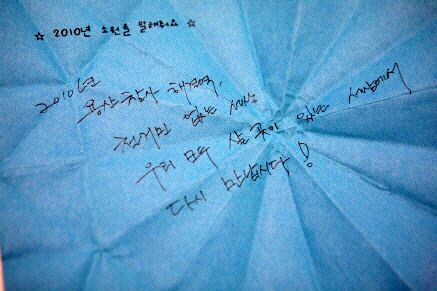 ☆ 2010년 소원을 말해줘요 ☆
2010년
용산참사 해결,
철거민 없는 세상
우리 모두 살 곳이 있는 세상에서
다시 만납시다!